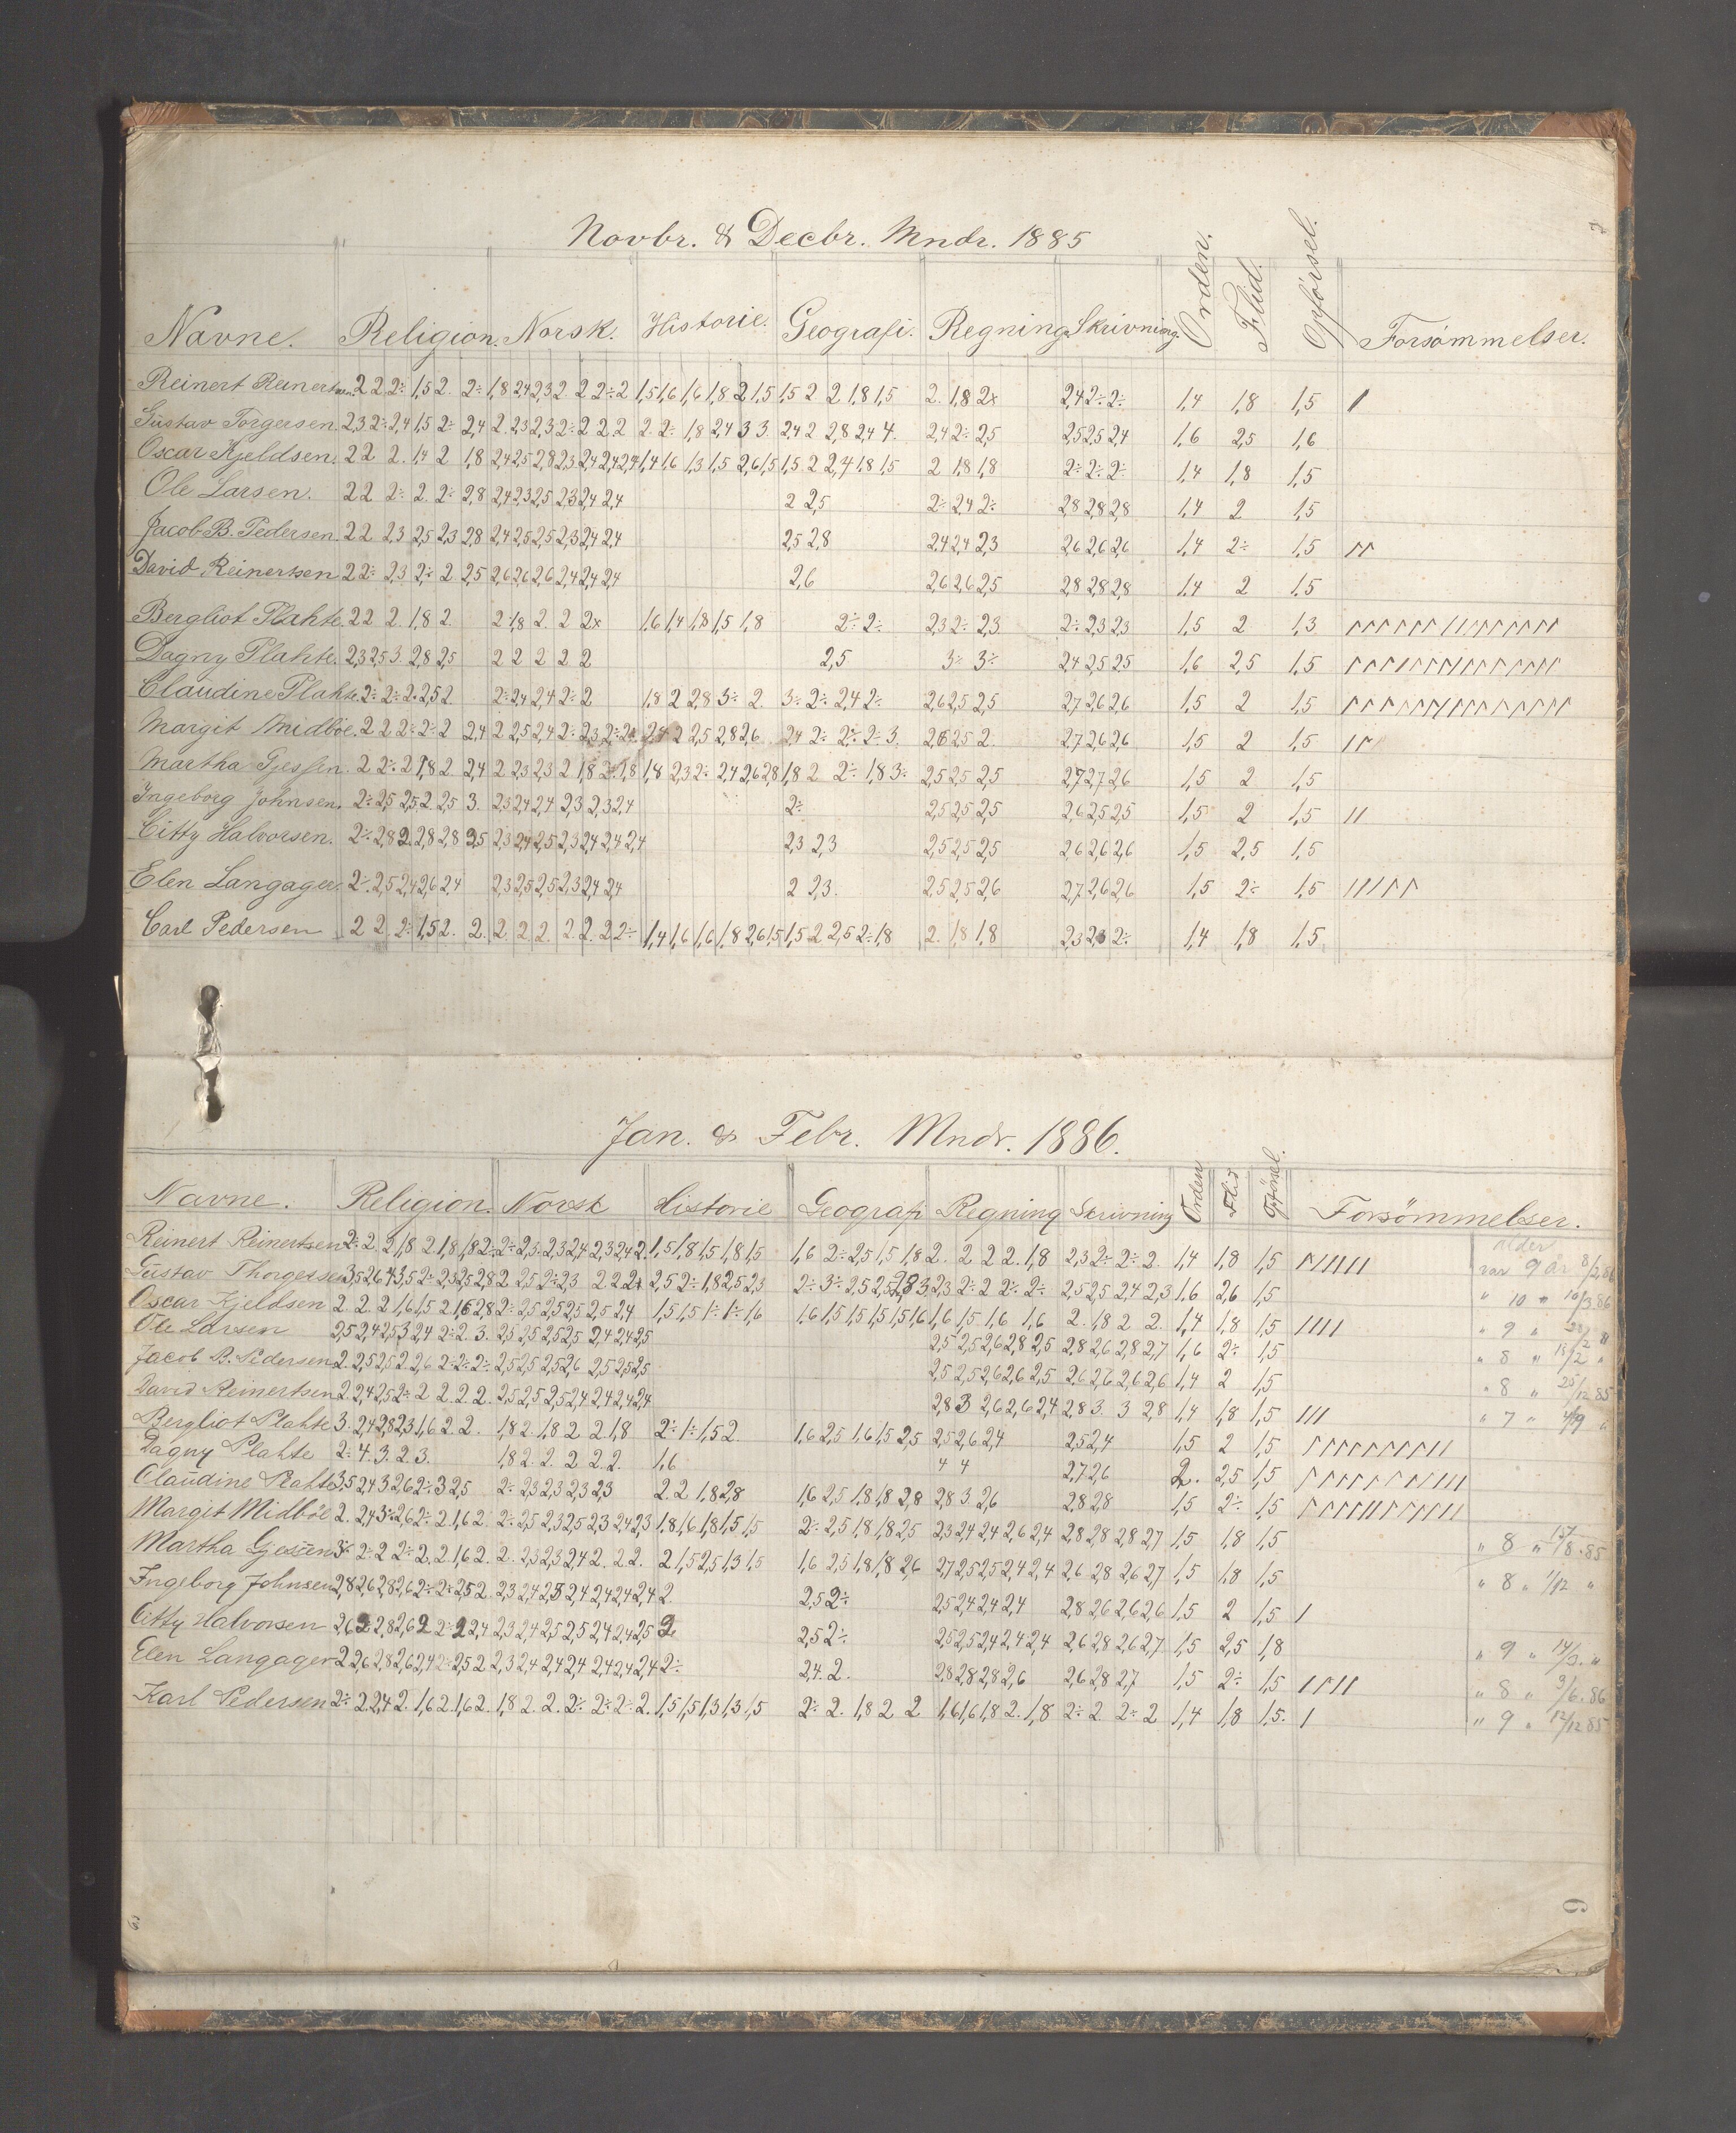 Novbr. & Decbr. Mndr. 1885
Navne. Religion. Norsk. Historie. Geografi. Regning Skrivning. Orden. Flid. Opførsel. Forsømmelser.
Reinert Reinertsen. 2 2 2÷ 1,5 2. 2÷ 1,8 2,4 2,3 2. 2 2÷ 2 1,5 1,6 1,6 1,8 2 1,5 1,5 2 2 1,8 1,5 2. 1,8 2x 2,4 2÷ 2÷ 1,4 1,8 1,5
Gustav Torgersen. 2,3 2÷ 2,4 1,5 2÷ 2,4 2. 2,3 2,3 2÷ 2 2 2 2. 2÷ 1,8 2,4 3 3. 2,4 2 2,8 2,4 4. 2,4 2÷ 2,5 2,5 2,5 2,4 1,6 2,5 1,6
Oscar Kjeldsen. 2 2 2. 1,4 2 1,8 2,4 2,5 2,8 2,3 2,4 2,4 2,4 1,4 1,6 1,3 1,5 2,6 1,5 1,5 2 2,4 1,8 1,5 2 1,8 1,8 2÷ 2÷ 2÷ 1,4 1,8 1,5
Ole Larsen. 2 2 2÷ 2. 2÷ 2,8 2,4 2,3 2,5 2,3 2,4 2,4 2 2,5 2÷ 2,4 2÷ 2,8 2,8 2,8 1,4 2 1,5
Jacob B. Pedersen. 2 2 2,3 2,5 2,3 2,8 2,4 2,5 2,5 2,3 2,4 2,4 2,5 2,8 2,4 2,4 2,3 2,6 2,6 2,6 1,4 2÷ 1,5
David Reinertsen 2 2÷ 2,3 2÷ 2 2,5 2,6 2,6 2,6 2,4 2,4 2,4 2,6 2,6 2,6 2,5 2,8 2,8 2,8 1,4 2 1,5
Bergliot Plahte. 2 2 2 1,8 2. 2 1,8 2. 2 2x 1,6 1,4 1,8 1,5 1,8 2÷ 2÷ 2,3 2÷ 2,3 2÷ 2,3 2,3 1,5 2 1,3
Dagny Plahte. 2,3 2,5 3. 2,8 2,5 2 2 2 2 2 2,5 3÷ 3÷ 2,4 2,5 2,5 1,6 2,5 1,5
Claudine Plahte. 2÷ 2÷ 2. 2,5 2. 2÷ 2,4 2,4 2÷ 2 1,8 2 2,8 3÷ 2. 3÷ 2÷ 2,4 2÷ 2,6 2,5 2,5 2,7 2,6 2,6 1,5 2 1,5
Margit Midböe. 2 2 2÷ 2÷ 2 2,4 2 2,5 2,4 2÷ 2,3 2÷ 2 2,5 2,8 2,6 2,4 2÷ 2÷ 2÷ 3. 2,6 2,5 2. 2,7 2,6 2,6 1,5 2 1,5
Martha Gjessen. 2 2÷ 2 1,8 2 2,4 2 2,3 2,3 2 1,8 1,8 1,8 2,3 2÷ 2,4 2,6 2,8 1,8 2 2÷ 1,8 3÷ 2,5 2,5 2,5 2,7 2,7 2,6 1,5 2 1,5
Ingeborg Johnsen. 2÷ 2,5 2,5 2. 2,5 3. 2,3 2,4 2,4 2,3 2,3 2,4 2÷ 2,5 2,5 2,5 2,6 2,5 2,5 1,5 2 1,5
Citty Halvorsen. 2÷ 2,8 2. 2,8 2,8 3,5 2,3 2,4 2,5 2,3 2,4 2,4 2,4 2,3 2,3 2,5 2,5 2,5 2,6 2,6 2,6 1,5 2,5 1,5
Elen Langager. 2÷ 2,5 2,4 2,6 2,4 2,3 2,5 2,5 2,3 2,4 2,4 2 2,3. 2,5 2,5 2,6 2,7 2,6 2,6 1,5 2÷ 1,5
Carl Pedersen 2 2 2÷ 1,5 2. 2. 2 2 2 2. 2. 2 2÷ 1,4 1,6 1,6 1,8 2,6 1,5 1,5 2 2,5 2÷ 1,8 2. 1,8 1,8 2,3 2,3 2÷ 1,4 1,8 1,5
Jan. & Febr. Mndr. 1886.
Navne. Religion. Norsk Historie Geografi Regning Skrivning Orden Flid Opførsel. Forsømmelser.
alder
Reinert Reinertsen 2÷ 2. 2 1,8 2. 1,8 1,8 2÷ 2÷ 2,5 2,3 2,4 2,3 2,4 2. 1,5 1,8 1,5 1,8 1,5 1,6 2÷ 2,5 1,5 1,8 2. 2 2 2. 1,8 2,3 2÷ 2÷ 2. 1,4 1,8 1,5 var 9 år 8/2 86
Gustav Thorgersen 3,5 2,6 4 3,5 2÷ 2,3 2,5 2,8 2 2,5 2÷ 2,3 2 2 2x 2,5 2÷ 1,8 2,5 2,3 2÷ 3÷ 2,5 2,5 2,8 3. 2,3 2÷ 2 2÷ 2÷ 2,5 2,5 2,4 2,3 1,6 2,6 1,5 " 10 " 10/3 86
Oscar Kjeldsen 2. 2. 2 1,6 1,5 2. 1,6 2,8 2÷ 2,5 2,5 2,5 2,5 2,4 1,5 1,5 1÷ 1÷ 1,6 1,6 1,5 1,5 1,5 1,5 1,6 1,6 1,5 1,6 1,6 2. 1,8 2 2. 1,4 1,8 1,5 " 9 "
Ole Larsen 2,5 2,4 2,5 3 2,4 2÷ 2. 3. 2,5 2,5 2,5 2,5 2,4 2,4 2,5 2,5 2,5 2,6 2,8 2,5 2,8 2,6 2,8 2,7 1,6 2÷ 1,5 " 8 " 18/2 "
Jacob B. Pedersen 2. 2,5 2,5 2. 2,6 2÷ 2÷ 2÷ 2,5 2,5 2,5 2,6 2,5 2,5 2,5 2,5 2,5 2,6 2,6 2,5 2,6 2,6 2,6 2,6 1,4 2 1,5 " 8 " 25/12 85
David Reinertsen 2. 2,4 2,5 2÷ 2 2. 2. 2. 2,5 2,5 2,5 2,4 2,4 2,4 2,4 2,8 3 2,6 2,6 2,4 2,8 3. 3 2,8 1,4 1,8 1,5 " 7 " 4/9 "
Bergliot Plahte 3. 2,4 2,8 2,3 1,6 2. 2. 1,8 2. 1,8 2 2. 1,8 2÷ 1÷ 1,5 2. 1,6 2,5 1,6 1,5 2,5 2,5 2,6 2,4 2,5 2,4 1,5 2 1,5
Dagny Plahte 2÷ 4. 3. 2. 3. 1,8 2. 2. 2 2. 2. 1,6 4 4 2,7 2,6 2. 2,5 1,5
Claudine Plahte 3,5 2,4 3 2,6 2÷ 3 2,5 2÷ 2,3 2,3 2,3 2,3 2. 2 1,8 2,8 1,6 2,5 1,8 1,8 2,8 2,8 3. 2,6 2,8 2,8 1,5 2÷ 1,5
Margit Midböe 2. 2,4 3÷ 2,6 2÷ 2. 1,6 2. 2÷ 2,5 2,3 2,5 2,3 2,4 2,3 1,8 1,6 1,8 1,5 1,5 2÷ 2,5 1,8 1,8 2,5 2,3 2,4 2,4 2,6 2,4 2,8 2,8 2,8 2,7 1,5 1,8 1,5 " 8 " 15/8 85
Martha Gjessen 3÷ 2÷ 2 2÷ 2. 2. 1,6 2. 2. 2,3 2,3 2,4 2. 2 2. 2 1,5 2,5 1,3 1,5 1,6 2,5 1,8 1,8 2,6 2,7 2,5 2,5 2,4 2,4 2,6 2,8 2,6 2,7 1,5 1,8 1,5 " 8 " 1/12 "
Ingeborg Johnsen 2,8 2,6 2,8 2,6 2÷ 2÷ 2,5 2. 2,3 2,4 2,3 2,4 2,4 2,4 2,4 2. 2,5 2÷ 2,5 2,4 2,4 2,4 2,8 2,6 2,6 2,6 1,5 2 1,5
Citty Halvorsen 2,6 2 2,8 2,6 2 2÷ 2 2,4 2,3 2,4 2,5 2,5 2,4 2,4 2,5 2 2,5 2÷ 2,5 2,5 2,4 2,4 2,4 2,6 2,8 2,6 2,7 1,5 2,5 1,8 " 9 " 14/3 "
Elen Langager 2 2,6 2,8 2,6 2,4 2÷ 2,5 2 2,3 2,4 2,4 2,4 2,4 2,4 2,4 2÷ 2,4. 2. 2,8 2,8 2,8 2,6 2,6 2,8 2,7 1,5 2÷ 1,5 " 8 " 3/6 86
Karl Pedersen 2÷ 2. 2,4 2. 1,6 2. 1,6 2. 1,8 2. 2. 2÷ 2÷ 2÷ 2. 1,5 1,5 1,3 1,3 1,5 2÷ 2. 1,8 2 2 1,6 1,6 1,8 2. 1,8 2÷ 2. 2÷ 2 1,4 1,8 1,5. " 9 " 12/12 85
6